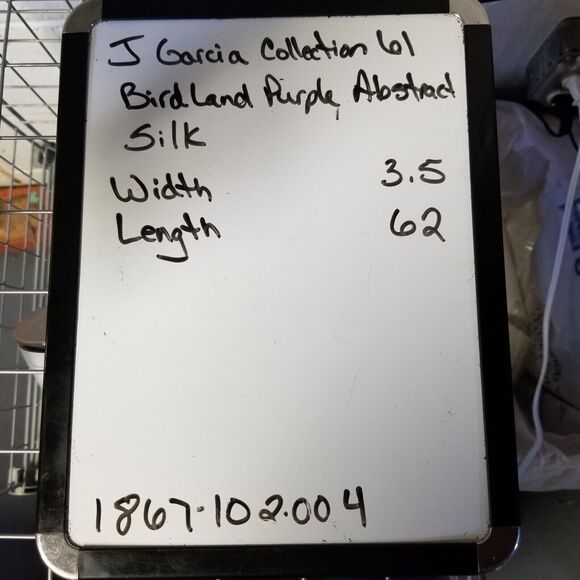 J Garcia Collection 61
Birdland Purple, Abstract
Silk
Width 3.5
Length 62
1867.102.004